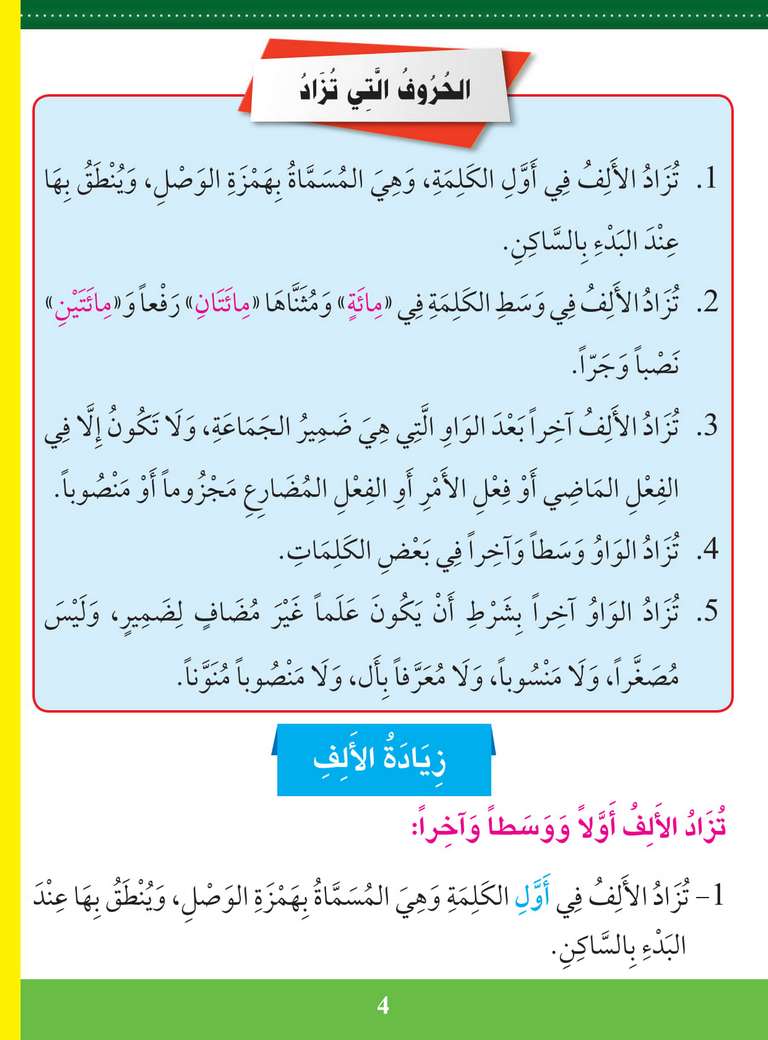 الحُرُوفُ الَّتِي تُزَادُ
1. تُزَادُ الأَلِفُ فِي أَوَّلِ الكَلِمَةِ، وَهِيَ المُسَمَّاةُ بِهَمْزَةِ الوَصْلِ، وَيُنْطَقُ بِهَا
عِنْدَ البَدْءِ بِالسَّاكِنِ.
2. تُزَادُ الأَلِفُ فِي وَسَطِ الكَلِمَةِ فِي «مِائَةٍ» وَمُثَنَّاهَا «مِائَتَانِ» رَفْعاً وَ«مِائَتَيْنِ»
نَصْباً وَجَرّاً.
3. تُزَادُ الأَلِفُ آخِراً بَعْدَ الوَاوِ الَّتِي هِيَ ضَمِيرُ الجَمَاعَةِ، وَلَا تَكُونُ إِلَّا فِي
الفِعْلِ المَاضِي أَوْ فِعْلِ الأَمْرِ أَوِ الفِعْلِ المُضَارِعِ مَجْزُوماً أَوْ مَنْصُوباً.
4. تُزَادُ الوَاوُ وَسَطاً وَآخِراً فِي بَعْضِ الكَلِمَاتِ.
5. تُزَادُ الوَاوُ آخِراً بِشَرْطِ أَنْ يَكُونَ عَلَماً غَيْرَ مُضَافٍ لِضَمِيرٍ، وَلَيْسَ
مُصَغَّراً، وَلَا مَنْسُوباً، وَلَا مُعَرَّفاً بِأَل، وَلَا مَنْصُوباً مُنَوَّناً.
زِيَادَةُ الأَلِفِ
تُزَادُ الأَلِفُ أَوَّلاً وَوَسَطاً وَآخِراً:
1- تُزَادُ الأَلِفُ فِي أَوَّلِ الكَلِمَةِ وَهِيَ المُسَمَّاةُ بِهَمْزَةِ الوَصْلِ، وَيُنْطَقُ بِهَا عِنْدَ
البَدْءِ بِالسَّاكِنِ.
4